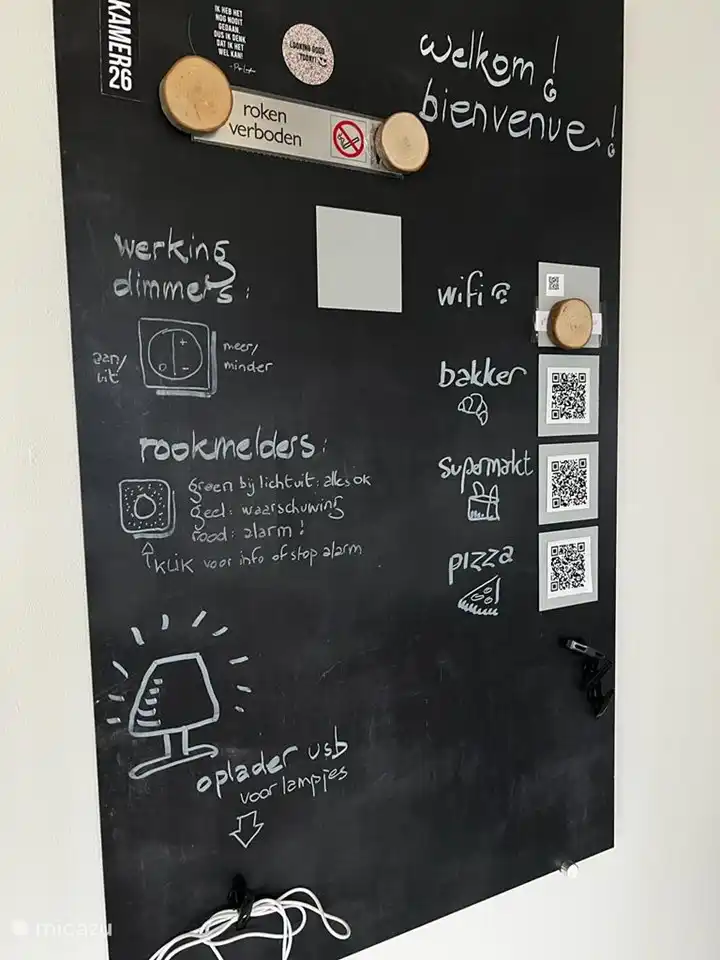 KAMER26
IK HEB HET
NOG NOOIT
GEDAAN,
DUS IK DENK
DAT IK HET
WEL KAN!
LOOKING GOOD
TODAY!
welkom!
bienvenue!
roken
verboden
werking
dimmers:
aan/
uit
meer/
minder
rookmelders:
groen bij licht uit: alles ok
geel: waarschuwing
rood: alarm!
KLIK voor info of stop alarm
wifi
bakker
supermarkt
pizza
oplader usb
voor lampjes
micazu